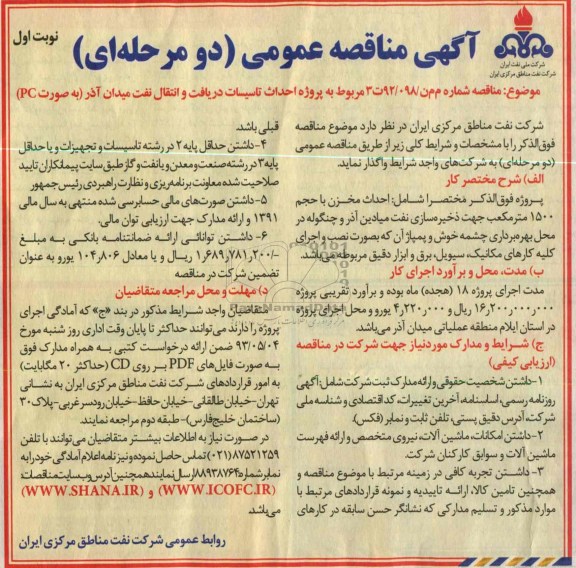 نوبت اول
آگهی مناقصه عمومی (دو مرحله‌ای)
شرکت ملی نفت ایران
شرکت نفت مناطق مرکزی ایران
موضوع: مناقصه شماره م‌م‌ن/۹۲/۰۹۸ت۳ مربوط به پروژه احداث تاسیسات دریافت و انتقال نفت میدان آذر (به صورت PC)
شرکت نفت مناطق مرکزی ایران در نظر دارد موضوع مناقصه
فوق‌الذکر را با مشخصات و شرایط کلی زیر از طریق مناقصه عمومی
(دو مرحله‌ای) به شرکت‌های واجد شرایط واگذار نماید.
الف) شرح مختصر کار
پروژه فوق‌الذکر مختصرا شامل: احداث مخزن با حجم
۱۵۰۰ مترمکعب جهت ذخیره‌سازی نفت میادین آذر و چنگوله در
محل بهره‌برداری چشمه خوش و پمپاژ آن که بصورت نصب و اجرای
کلیه کارهای مکانیک، سیویل، برق و ابزار دقیق مربوطه می‌باشد.
ب) مدت، محل و برآورد اجرای کار
مدت اجرای پروژه ۱۸ (هجده) ماه بوده و برآورد تقریبی پروژه
۱۶٫۲۰۰٫۰۰۰٫۰۰۰ ریال و ۴٫۲۲۰٫۰۰۰ یورو و محل اجرای پروژه
در استان ایلام منطقه عملیاتی میدان آذر می‌باشد.
ج) شرایط و مدارک موردنیاز جهت شرکت در مناقصه
(ارزیابی کیفی)
۱-داشتن شخصیت حقوقی و ارائه مدارک ثبت شرکت شامل: آگهی
روزنامه رسمی، اساسنامه، آخرین تغییرات، کد اقتصادی و شناسه ملی
شرکت، آدرس دقیق پستی، تلفن ثابت و نمابر (فکس).
۲-داشتن امکانات، ماشین آلات، نیروی متخصص و ارائه فهرست
ماشین آلات و سوابق کارکنان شرکت.
۳- داشتن تجربه کافی در زمینه مرتبط با موضوع مناقصه و
همچنین تامین کالا، ارائه تاییدیه و نمونه قراردادهای مرتبط با
موارد مذکور و تسلیم مدارکی که نشانگر حسن سابقه در کارهای
قبلی باشد.
۴-داشتن حداقل پایه ۲ در رشته تاسیسات و تجهیزات و یا حداقل
پایه ۳ در رشته صنعت و معدن و یا نفت و گاز طبق سایت پیمانکاران تایید
صلاحیت شده معاونت برنامه‌ریزی و نظارت راهبردی رئیس جمهور
۵-داشتن صورت‌های مالی حسابرسی شده منتهی به سال مالی
۱۳۹۱ و ارائه مدارک جهت ارزیابی توان مالی.
۶- داشتن توانائی ارائه ضمانتنامه بانکی به مبلغ
۱٫۶۸۹٫۷۸۱٫۲۰۰/- ریال و یا معادل ۱۰۴٫۸۰۶ یورو به عنوان
تضمین شرکت در مناقصه
د) مهلت و محل مراجعه متقاضیان
متقاضیان واجد شرایط مذکور در بند «ج» که آمادگی اجرای
پروژه را دارند می‌توانند حداکثر تا پایان وقت اداری روز شنبه مورخ
۹۳/۰۵/۰۴ ضمن ارائه درخواست کتبی به همراه مدارک فوق
به صورت فایل‌های PDF بر روی CD (حداکثر ۲۰ مگابایت)
به امور قراردادهای شرکت نفت مناطق مرکزی ایران به نشانی
تهران-خیابان طالقانی -خیابان حافظ-خیابان رودسر غربی-پلاک ۳۰
(ساختمان خلیج فارس)- طبقه دوم مراجعه نمایند.
در صورت نیاز به اطلاعات بیشتر متقاضیان می‌توانند با تلفن
۸۷۵۲۱۲۵۹(۰۲۱) تماس حاصل نموده و نیز نامه اعلام آمادگی خود را به
نمابر شماره ۸۸۹۳۸۷۶۴ ارسال نمایند همچنین آدرس وب سایت مناقصات:
(WWW.ICOFC.IR) و (WWW.SHANA.IR)
می‌باشد.
روابط عمومی شرکت نفت مناطق مرکزی ایران